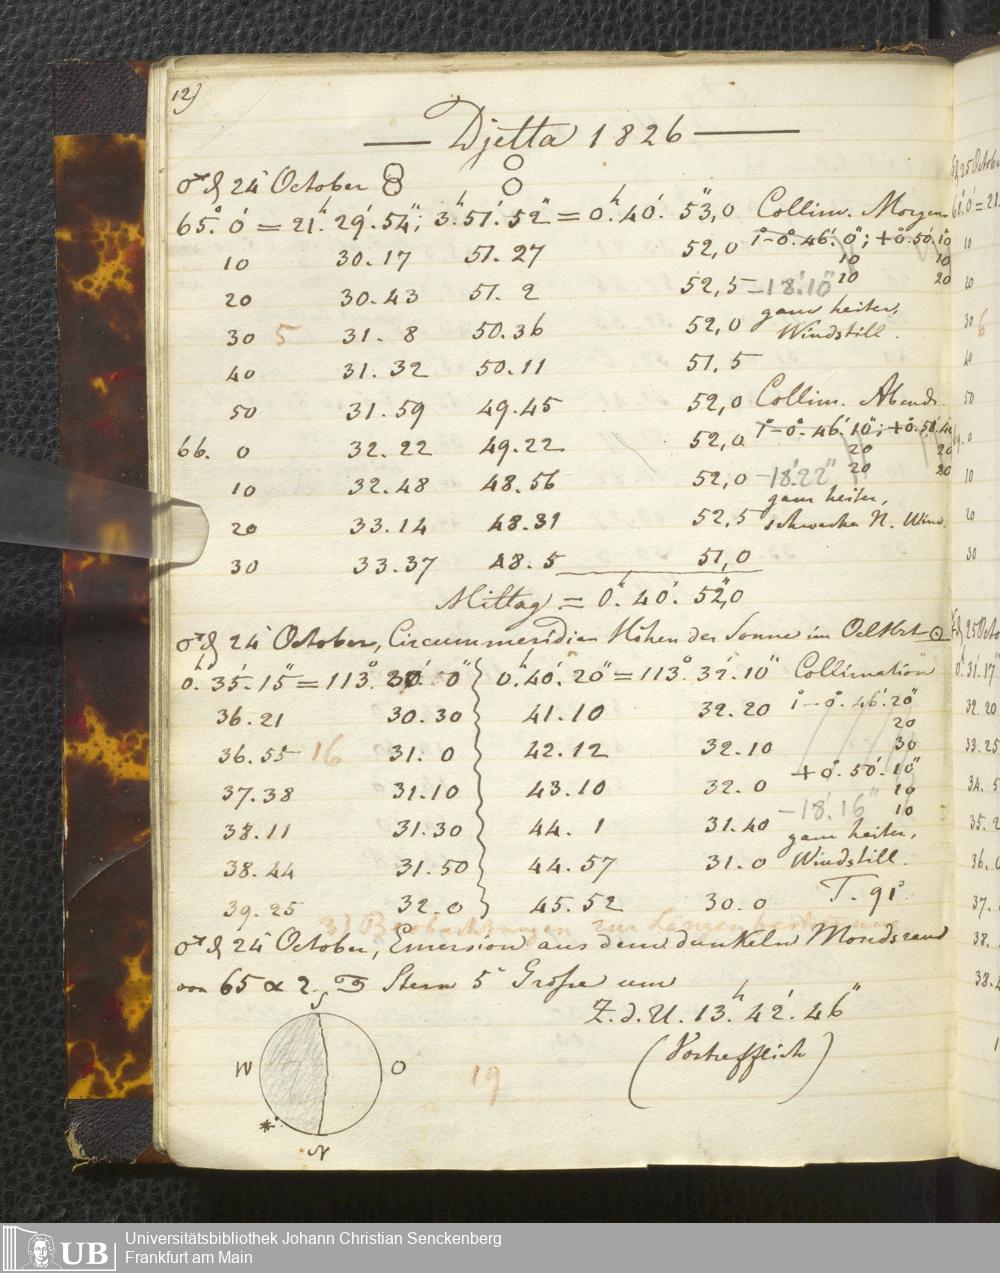 12)
Djetta 1826
♂ d 24 October
65°. 0' = 21h. 29'. 54"; 3h. 51'. 52" = 0h. 40'. 53",0 Collim. Morgens
10 30.17 51.27 52,0 1° - 0°. 46'. 0"; + 0°. 50'. 10"
10 10
20 20
20 30.43 51.2 52,5 - 18'.10"
ganz heiter,
30 5 31.8 50.36 52,0 Windstill.
40 31.32 50.11 51,5
50 31.59 49.45 52,0 Collim. Abends.
66. 0 32.22 49.22 52,0 1° - 0°. 46'. 10"; + 0°. 50'.
20 20
10 32.48 48.56 52,0 - 18'.22" 20 20
ganz heiter,
20 33.14 48.31 52,5 schwacher N. Wind.
30 33.37 48.5 51,0
Mittag = 0h. 40'. 52",0
♂ d 24 October, Circummeridian Höhen der Sonne im Oelhrt ☉
0h. 35'. 15" = 113°. 30'. 0" 0h. 40'. 20" = 113°. 32'. 10" Collimation
36.21 30.30 41.10 32.20 1° - 0°. 46'. 20"
20
36.55 16 31.0 42.12 32.10 30
+ 0°. 50'. 10"
37.38 31.10 43.10 32.0 10
- 18'. 16" 10
38.11 31.30 44.1 31.40 ganz heiter,
38.44 31.50 44.57 31.0 Windstill.
39.25 32.0 45.52 30.0 T. 91°.
3) Beobachtungen zur Längenbestimmung
♂ d 24 October, Emersion aus dem dunkeln Mondsrand
von 65 α 2. Stern 5r Größe um
S
Z. d. U. 13h. 42'. 46"
W O
(Vortrefflich)
19
*
N
UB
Universitätsbibliothek Johann Christian Senckenberg
Frankfurt am Main